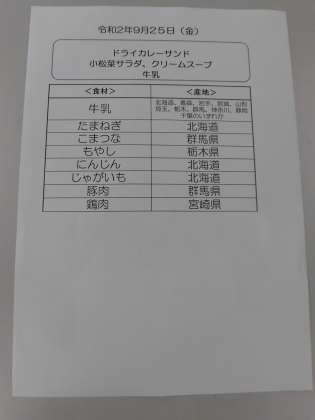 令和2年9月25日（金）
ドライカレーサンド
小松菜サラダ、クリームスープ
牛乳
＜食材＞ ＜産地＞
牛乳 北海道、青森、岩手、宮城、山形
埼玉、栃木、群馬、神奈川、静岡
千葉のいずれか
たまねぎ 北海道
こまつな 群馬県
もやし 栃木県
にんじん 北海道
じゃがいも 北海道
豚肉 群馬県
鶏肉 宮崎県